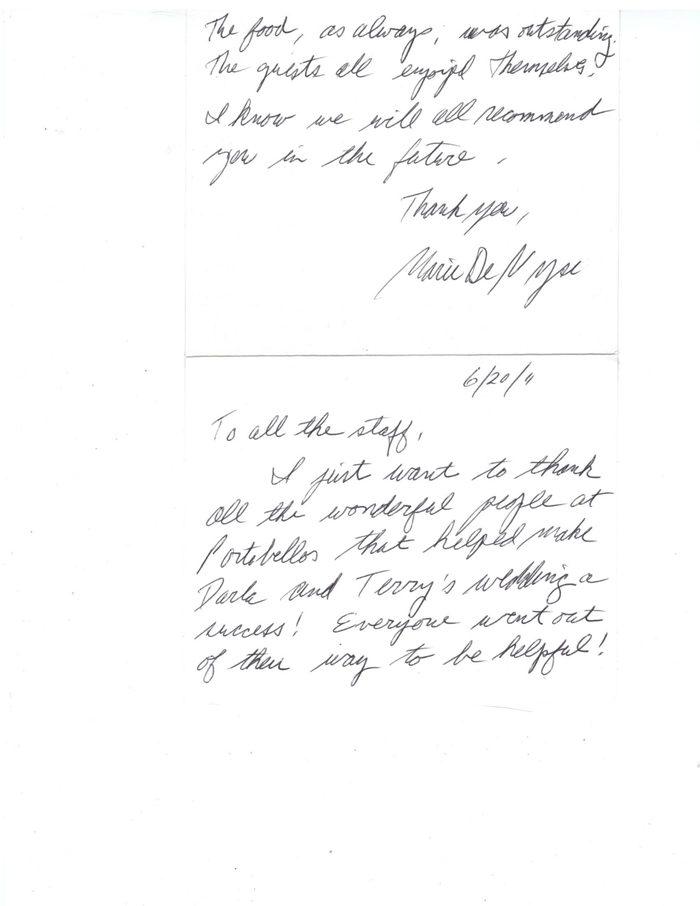 The food, as always, was outstanding.
The guests all enjoyed themselves &
I know we will all recommend
you in the future.
Thank you,
Marie DeNyse
6/20/11
To all the staff,
I just want to thank
all the wonderful people at
Portobellos that helped make
Darla and Terry's wedding a
success! Everyone went out
of their way to be helpful!